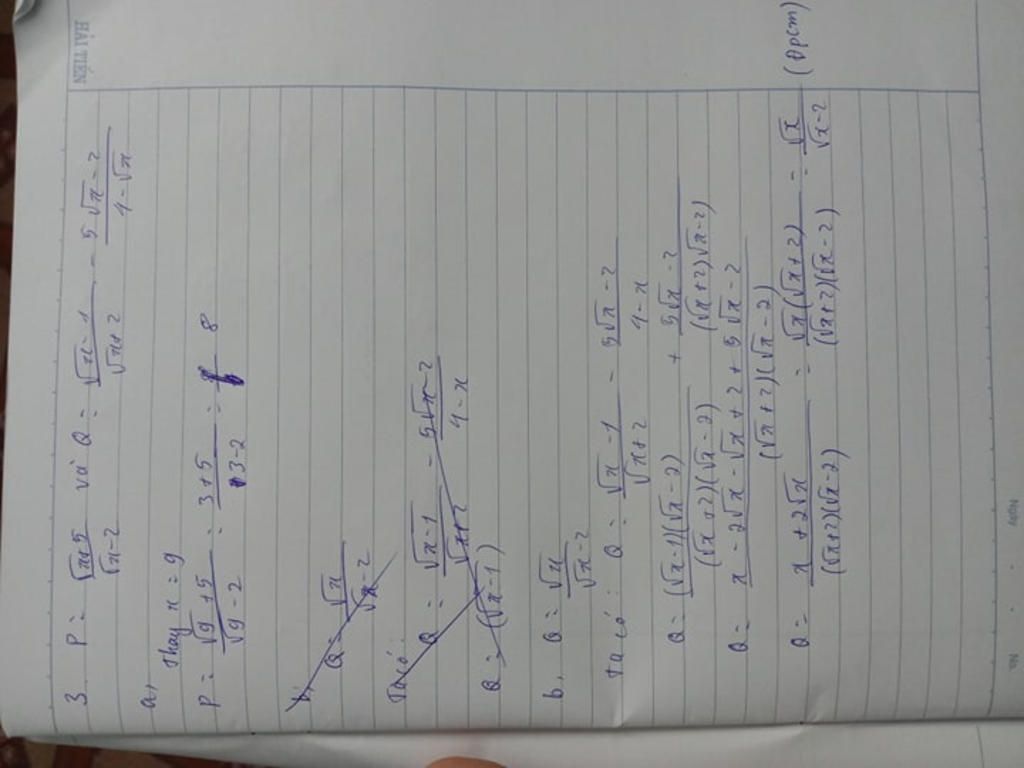 HẢI TIẾN
3 P = √x+5 / √x-2 và Q = √x-1 / √x+2 - 5√x-2 / 4-√x
a, Thay x = 9
P = √9+5 / √9-2 = 3+5 / 3-2 = 8
b,
Q = √x / √x-2
Ta có:
Q = √x-1 / √x+2 - 5√x-2 / 4-x
Q = (√x-1)
b, Q = √x / √x-2
Ta có: Q = √x-1 / √x+2 - 5√x-2 / 4-x
Q = (√x-1)(√x-2) / (√x+2)(√x-2) + 5√x-2 / (√x+2)√x-2)
Q = x-2√x-√x+2+5√x-2 / (√x+2)(√x-2)
Q = x+2√x / (√x+2)(√x-2) = √x(√x+2) / (√x+2)(√x-2) = √x / √x-2 (Đpcm)
No.
Ngày